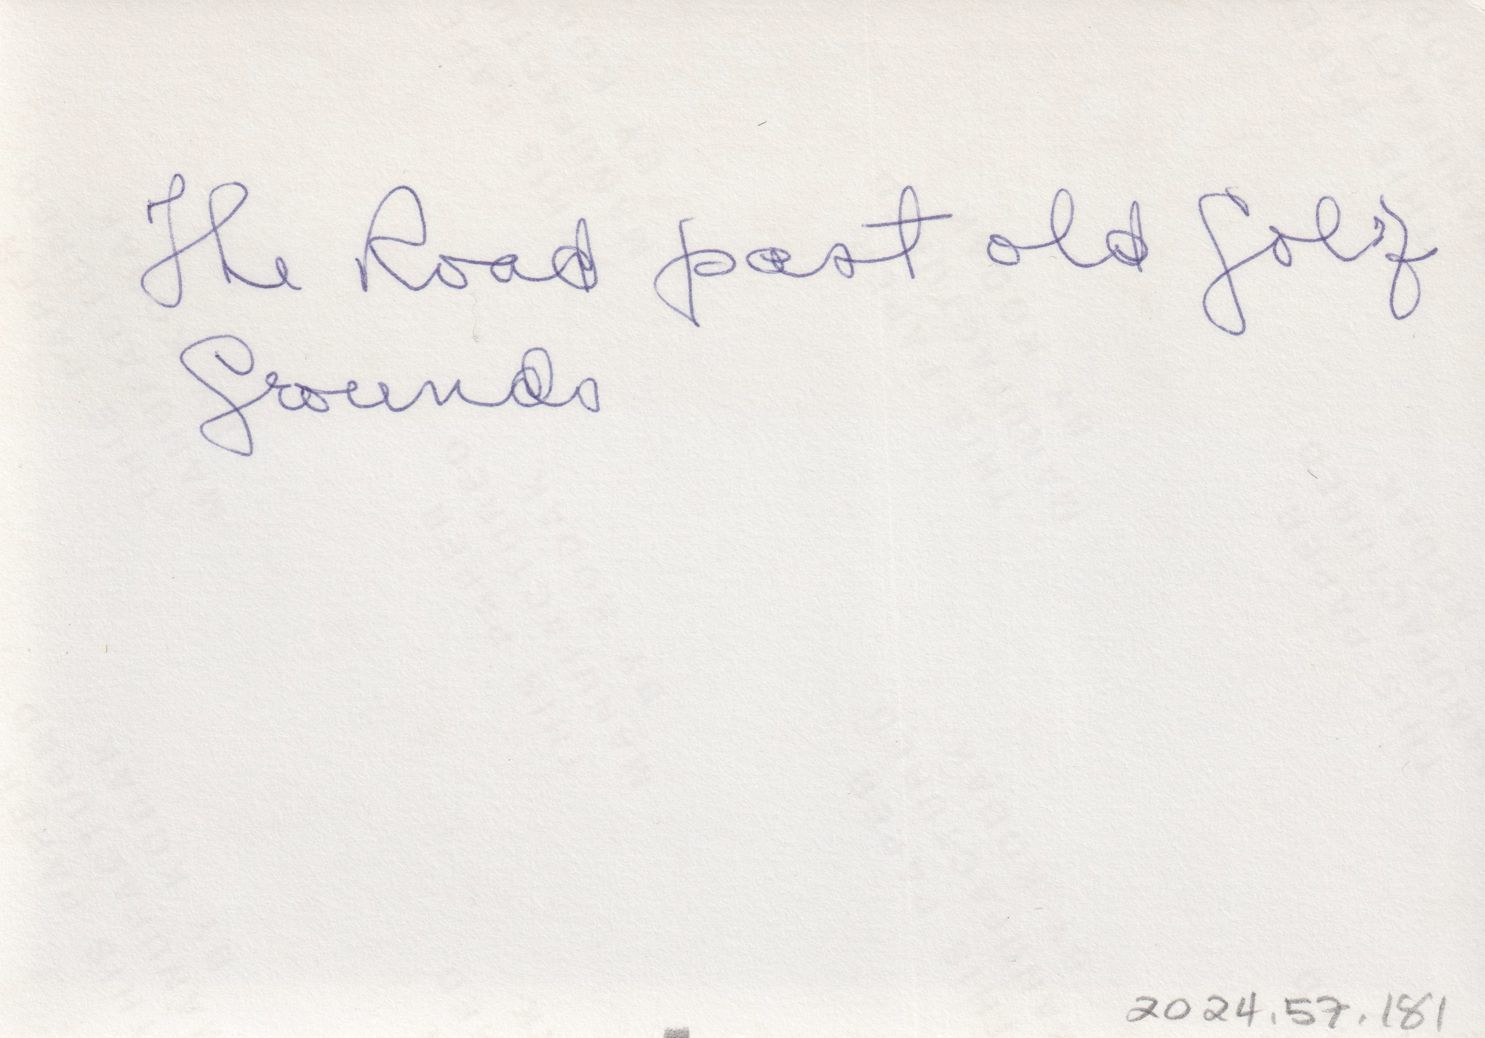 The Road past old Golf
Grounds
2024.57.181